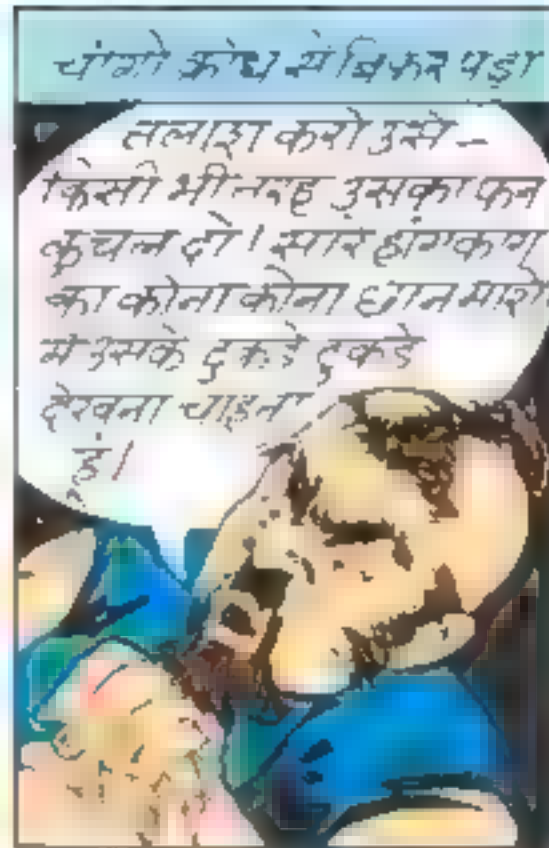 चांगो क्रोध से बिफर पड़ा
तलाश करो उसे -
किसी भी तरह उसका फन
कुचल दो। सारे हांगकांग
का कोना कोना छान मारो
मै उसके टुकडे टुकडे
देखना चाहता
हूं।